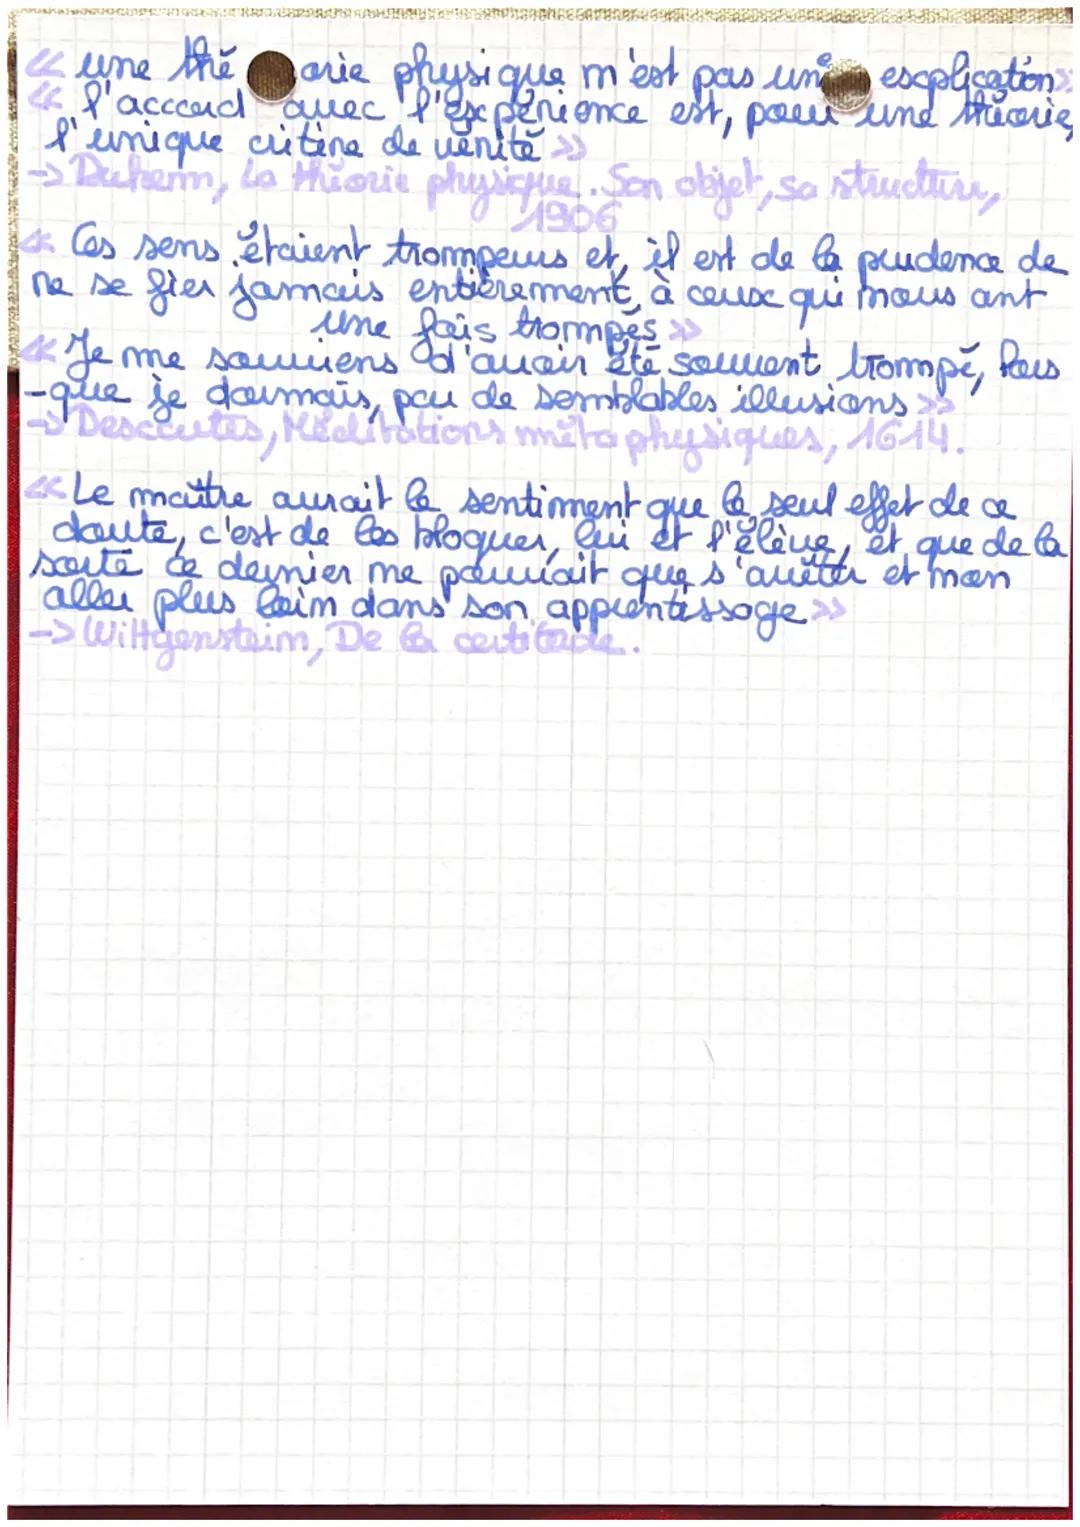 « une théorie physique n'est pas une explication»
« l'accord avec l'expérience est, pour une théorie,
l'unique critère de vérité »
-> Duhem, La théorie physique. Son objet, sa structure,
1906
« Ces sens étaient trompeurs et, il est de la prudence de
ne se fier jamais entièrement, à ceux qui nous ont
une fois trompés »
« Je me souviens d'avoir été souvent trompé, lors
-que je dormais, par de semblables illusions »
-> Descartes, Méditations métaphysiques, 1614.
« Le maître aurait le sentiment que le seul effet de ce
doute, c'est de les bloquer, lui et l'élève, et que de la
sorte ce dernier ne pourrait que s'arrêter et non
aller plus loin dans son apprentissage »
-> Wittgenstein, De la certitude.